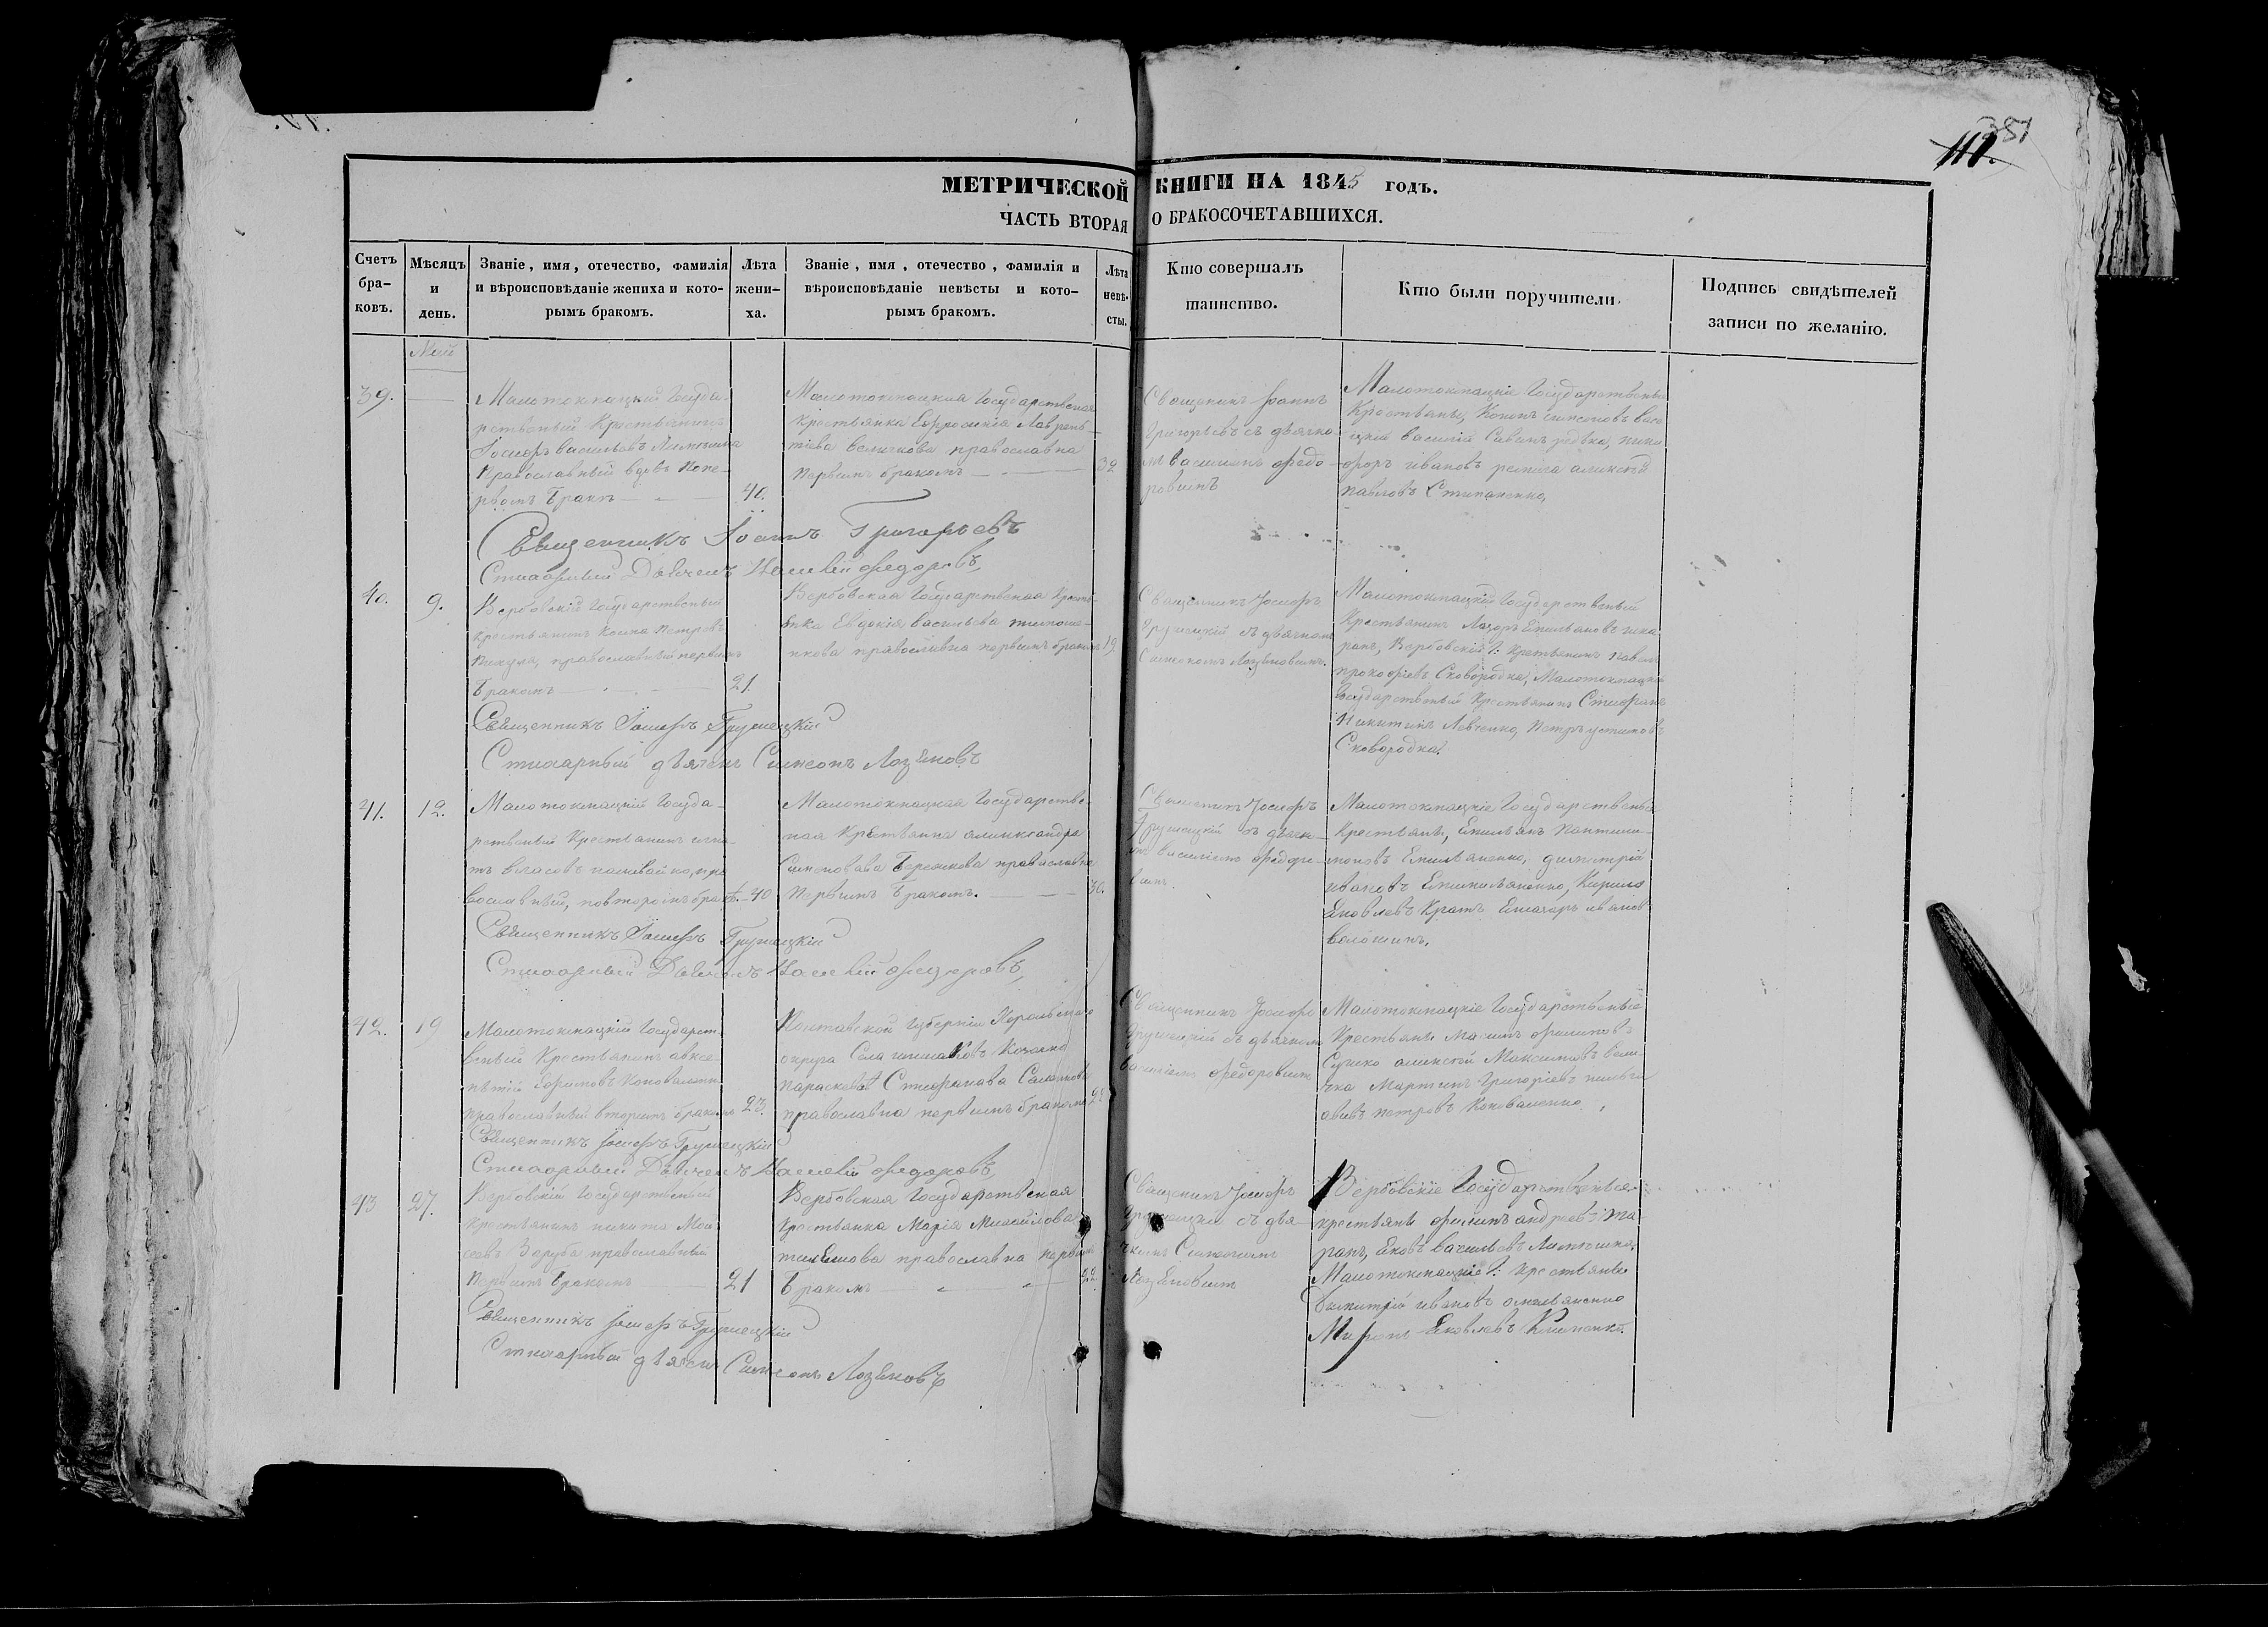 351
111.
МЕТРИЧЕСКОЙ КНИГИ НА 1845 годъ.
ЧАСТЬ ВТОРАЯ О БРАКОСОЧЕТАВШИХСЯ.
Счетъ
бра-
ковъ.
Мѣсяцъ
и
день.
Званіе, имя, отечество, фамилія
и вѣроисповѣданіе жениха и кото-
рымъ бракомъ.
Лѣта
жени-
ха.
Званіе, имя, отечество, фамилія и
вѣроисповѣданіе невѣсты и кото-
рымъ бракомъ.
Лѣта
невѣ-
сты.
Кто совершалъ
таинство.
Кто были поручители.
Подпись свидѣтелей
записи по желанію.
Май
39.
Малотокмацкій Госуда-
рственый Крестьянинъ
Іосифъ васильевъ
Православный вдовъ Попе-
рвомъ бракѣ
40.
Малотокмацкая Государственая
крестьянка Ефросинія Лаврень-
тіева величкова православна
первымъ бракомъ
32
Священикъ Іоаннъ
Григорьевъ съ дьячко-
мъ василіемъ федо-
ровымъ
Малотокмацкіе Государственые
Крестьяне, Кононъ симеоновъ
василій Савинъ
иванов
павловъ Степаненко,
Священникъ Іоаннъ Григорьевъ
Стихарный Дьячекъ Василій федоровъ,
40.
9.
Вербовскій Государственый
крестьянинъ Косма Петровъ
православный первымъ
бракомъ
21.
Вербовская Государственая кресть-
янка Евдокія васильева
православна первымъ бракомъ
19
Священникъ Іосифъ
Грушецкій съ дьячкомъ
Симеономъ Лозѣновымъ.
Малотокмацкій Государственый
Крестьянинъ Лазоръ Емельяновъ
Вербовскій Г: Крестьянинъ Павелъ
прокофіевъ Сковородка, Малотокмацкій
Государственый Крестьянинъ Стефанъ
Никитинъ Левченко, Петръ устиновъ
Сковородка.
Священникъ Іосифъ Грушецкій
Стихарный дьячекъ Симеонъ Лозѣновъ
41.
12.
Малотокмацкій Госуда-
рственый Крестьянинъ игна-
тъ власовъ пра-
вославный, повторомъ бракѣ.
40
Малотокмацкая Государстве-
ная Крестьянка александра
Симеонова Бережкова православна
Первымъ Бракомъ.
30.
Священикъ Іосифъ
Грушецкій съ дьячк-
омъ василіемъ федоро-
вымъ
Малотокмацкіе Государственые
Крестьяне, Емельянъ Пантели-
моновъ Емельяненко, димитрій
ивановъ Емельяненко, Кирило
Яковлевъ Кратъ ивановъ
волошинъ.
Священникъ Іосифъ Грушецкій
Стихарный Дьячекъ Василій федоровъ,
42.
19
Малотокмацкій Государст-
веный Крестьянинъ авксе-
нтій Ефимовъ Коноваленко
православный вторымъ бракомъ
23.
Полтавской Губерніи Хорольскаго
округа Села шишаковъ Козачка
параскева Стефанова
православна первымъ бракомъ
Священникъ Іосифъ
Грушецкій съ дьячкомъ
василіемъ федоровымъ
Малотокмацкіе Государственые
Крестьяне филиповъ
алексей Максимовъ вели-
чко Мартинъ Григоріевъ
петровъ Коноваленко,
Священникъ Іосифъ Грушецкій
Стихарный Дьячекъ Василій федоровъ,
43
27.
Вербовскій Государственый
крестьянинъ никита Мои-
сеевъ Заруба православный
Первымъ Бракомъ
21
Вербовская Государственая
крестьянка Марія Михайлова
православна первымъ
Бракомъ
22.
Священикъ Іосифъ
Грушецкій съ дья-
чкомъ Симеономъ
Лозѣновымъ
Вербовскіе Государственые
крестьяне филипъ андреевъ
Яковъ васильевъ
Малотокмацкіе Г: Крестьяне
Димитрій ивановъ омельяненко
Миронъ Яковлевъ Клименко.
Священникъ Іосифъ Грушецкій
Стихарный дьячекъ Симеонъ Лозѣновъ